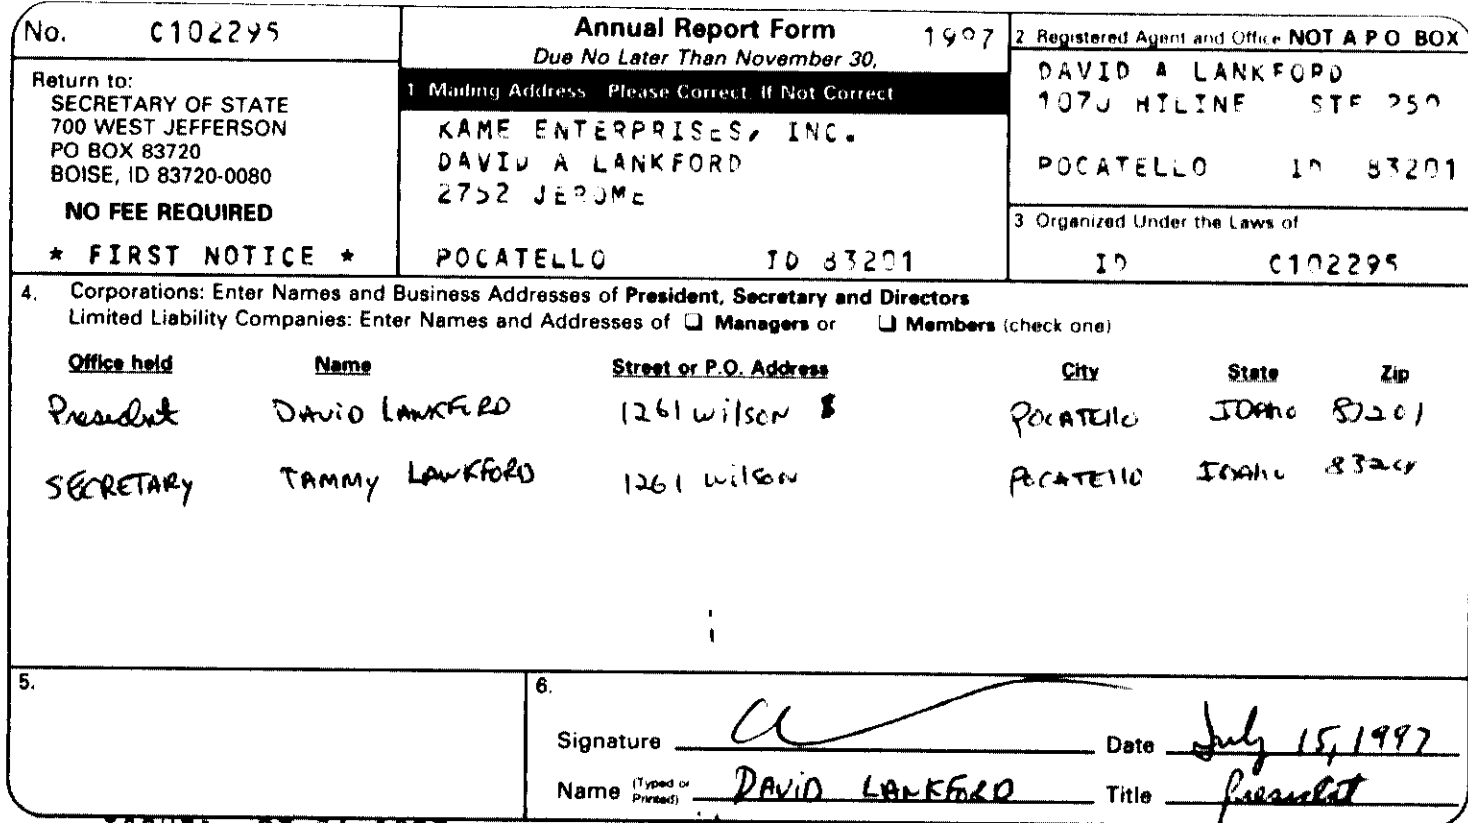 No. C102295
Return to:
SECRETARY OF STATE
700 WEST JEFFERSON
PO BOX 83720
BOISE, ID 83720-0080
NO FEE REQUIRED
* FIRST NOTICE *
Annual Report Form 1997
Due No Later Than November 30,
1 Mailing Address Please Correct, If Not Correct
KAME ENTERPRISES, INC.
DAVID A LANKFORD
2752 JEROME
POCATELLO ID 83201
2 Registered Agent and Office NOT A P O BOX
DAVID A LANKFORD
1070 HILINE STE 250
POCATELLO ID 83201
3 Organized Under the Laws of
ID C102295
4. Corporations: Enter Names and Business Addresses of President, Secretary and Directors
Limited Liability Companies: Enter Names and Addresses of ❑ Managers or ❑ Members (check one)
Office held Name Street or P.O. Address City State Zip
President DAVID LANKFORD 1261 Wilson POCATELLO IDAHO 83201
SECRETARY TAMMY LANKFORD 1261 Wilson POCATELLO IDAHO 83201
5.
6.
Signature Date July 15, 1997
Name (Typed or Printed) DAVID LANKFORD Title President